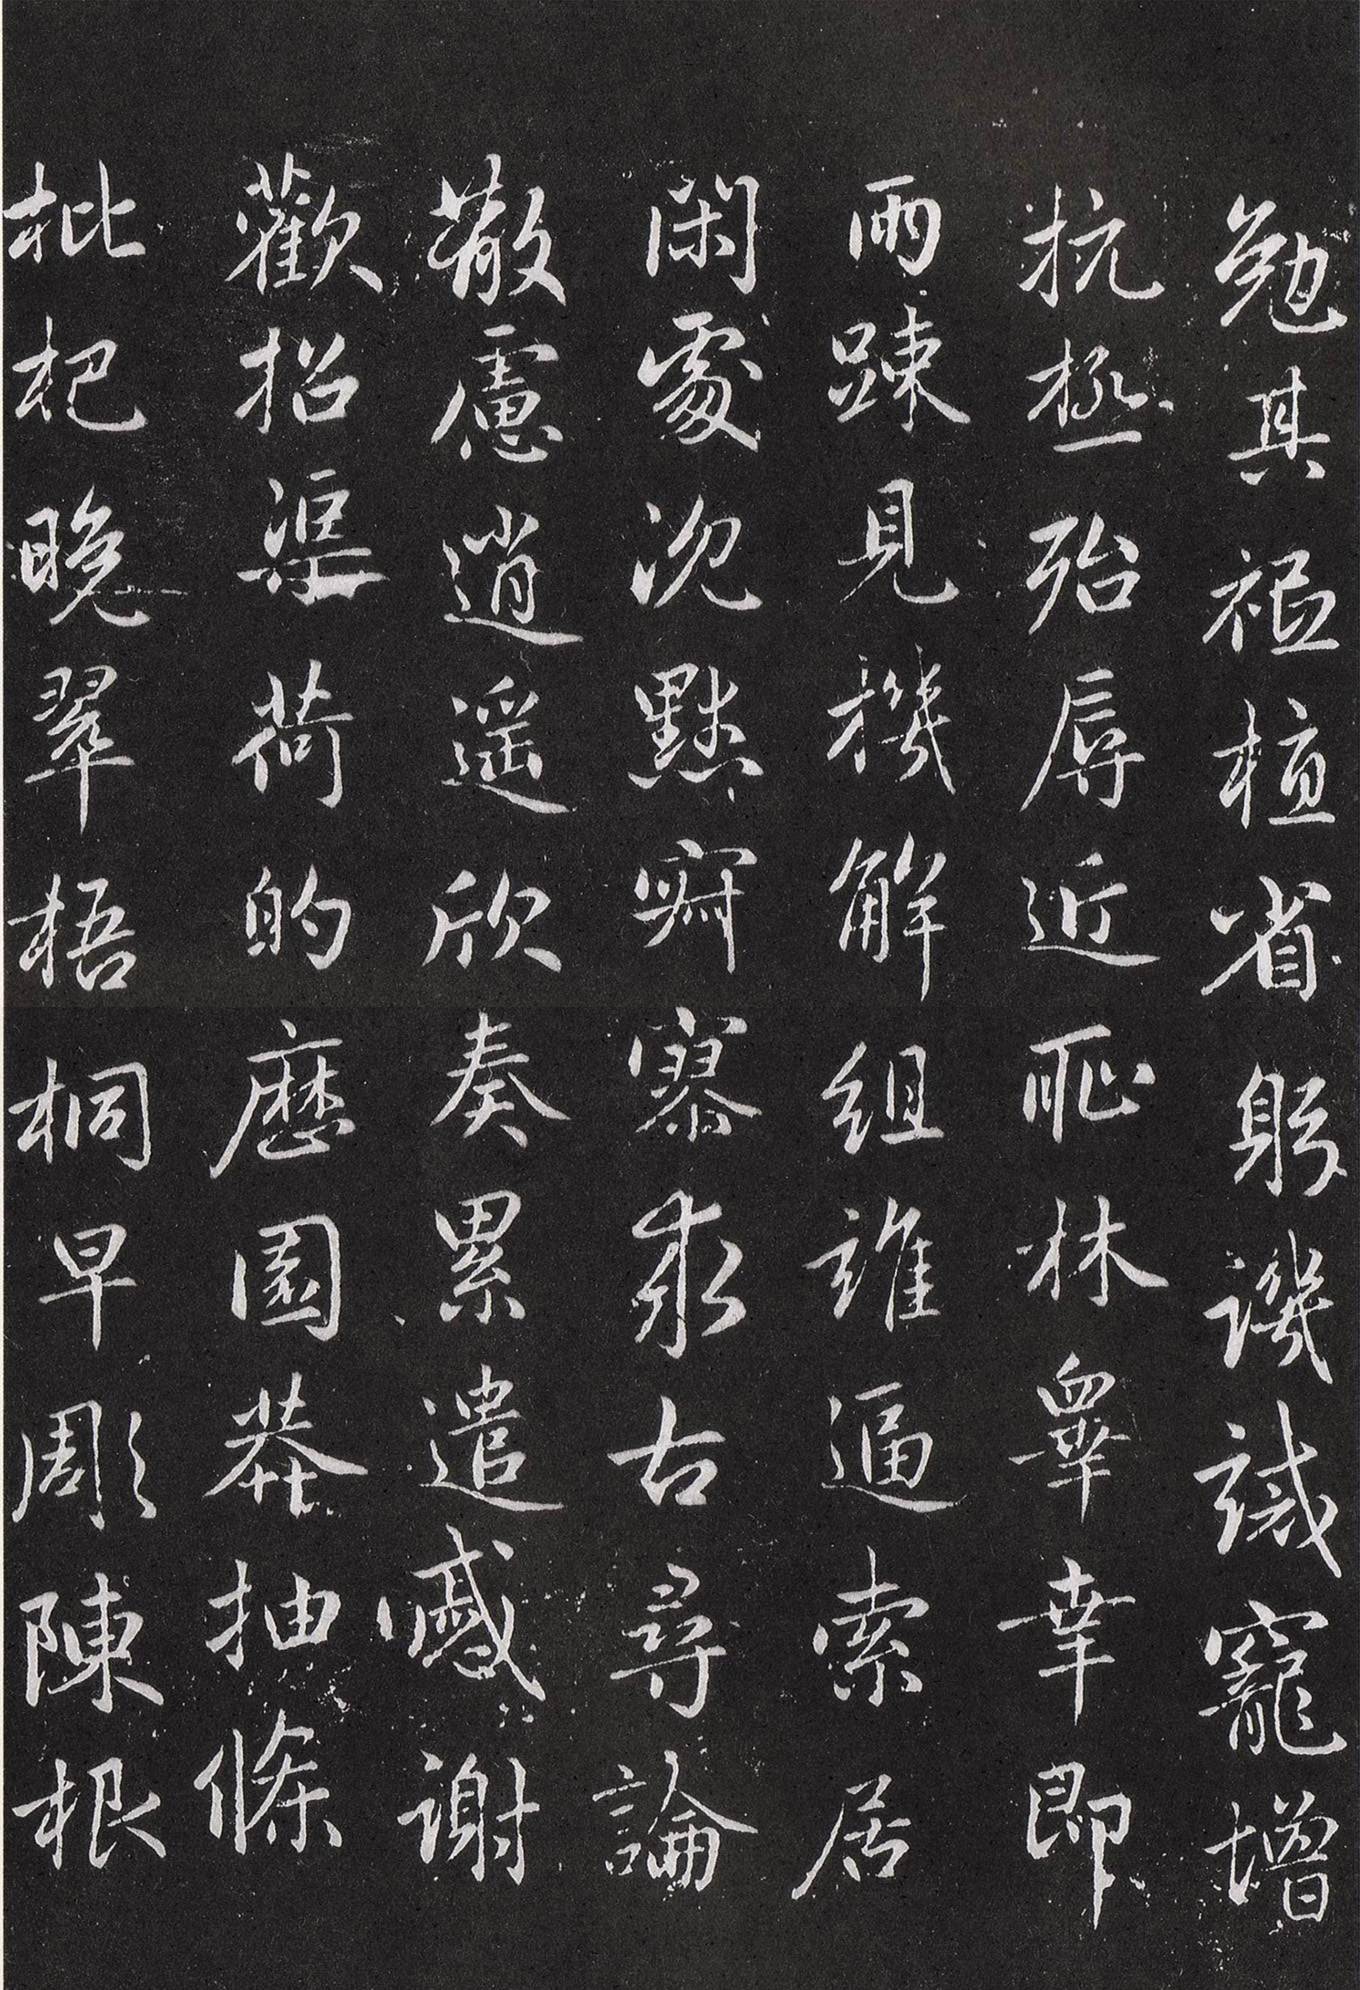 勉其祗植省躬譏誡寵增
抗極殆辱近恥林皋幸即
兩疎見機解組誰逼索居
閑處沉默寂寥求古尋論
散慮逍遙欣奏累遣慼謝
歡招渠荷的歷園莽抽條
枇杷晚翠梧桐早彫陳根